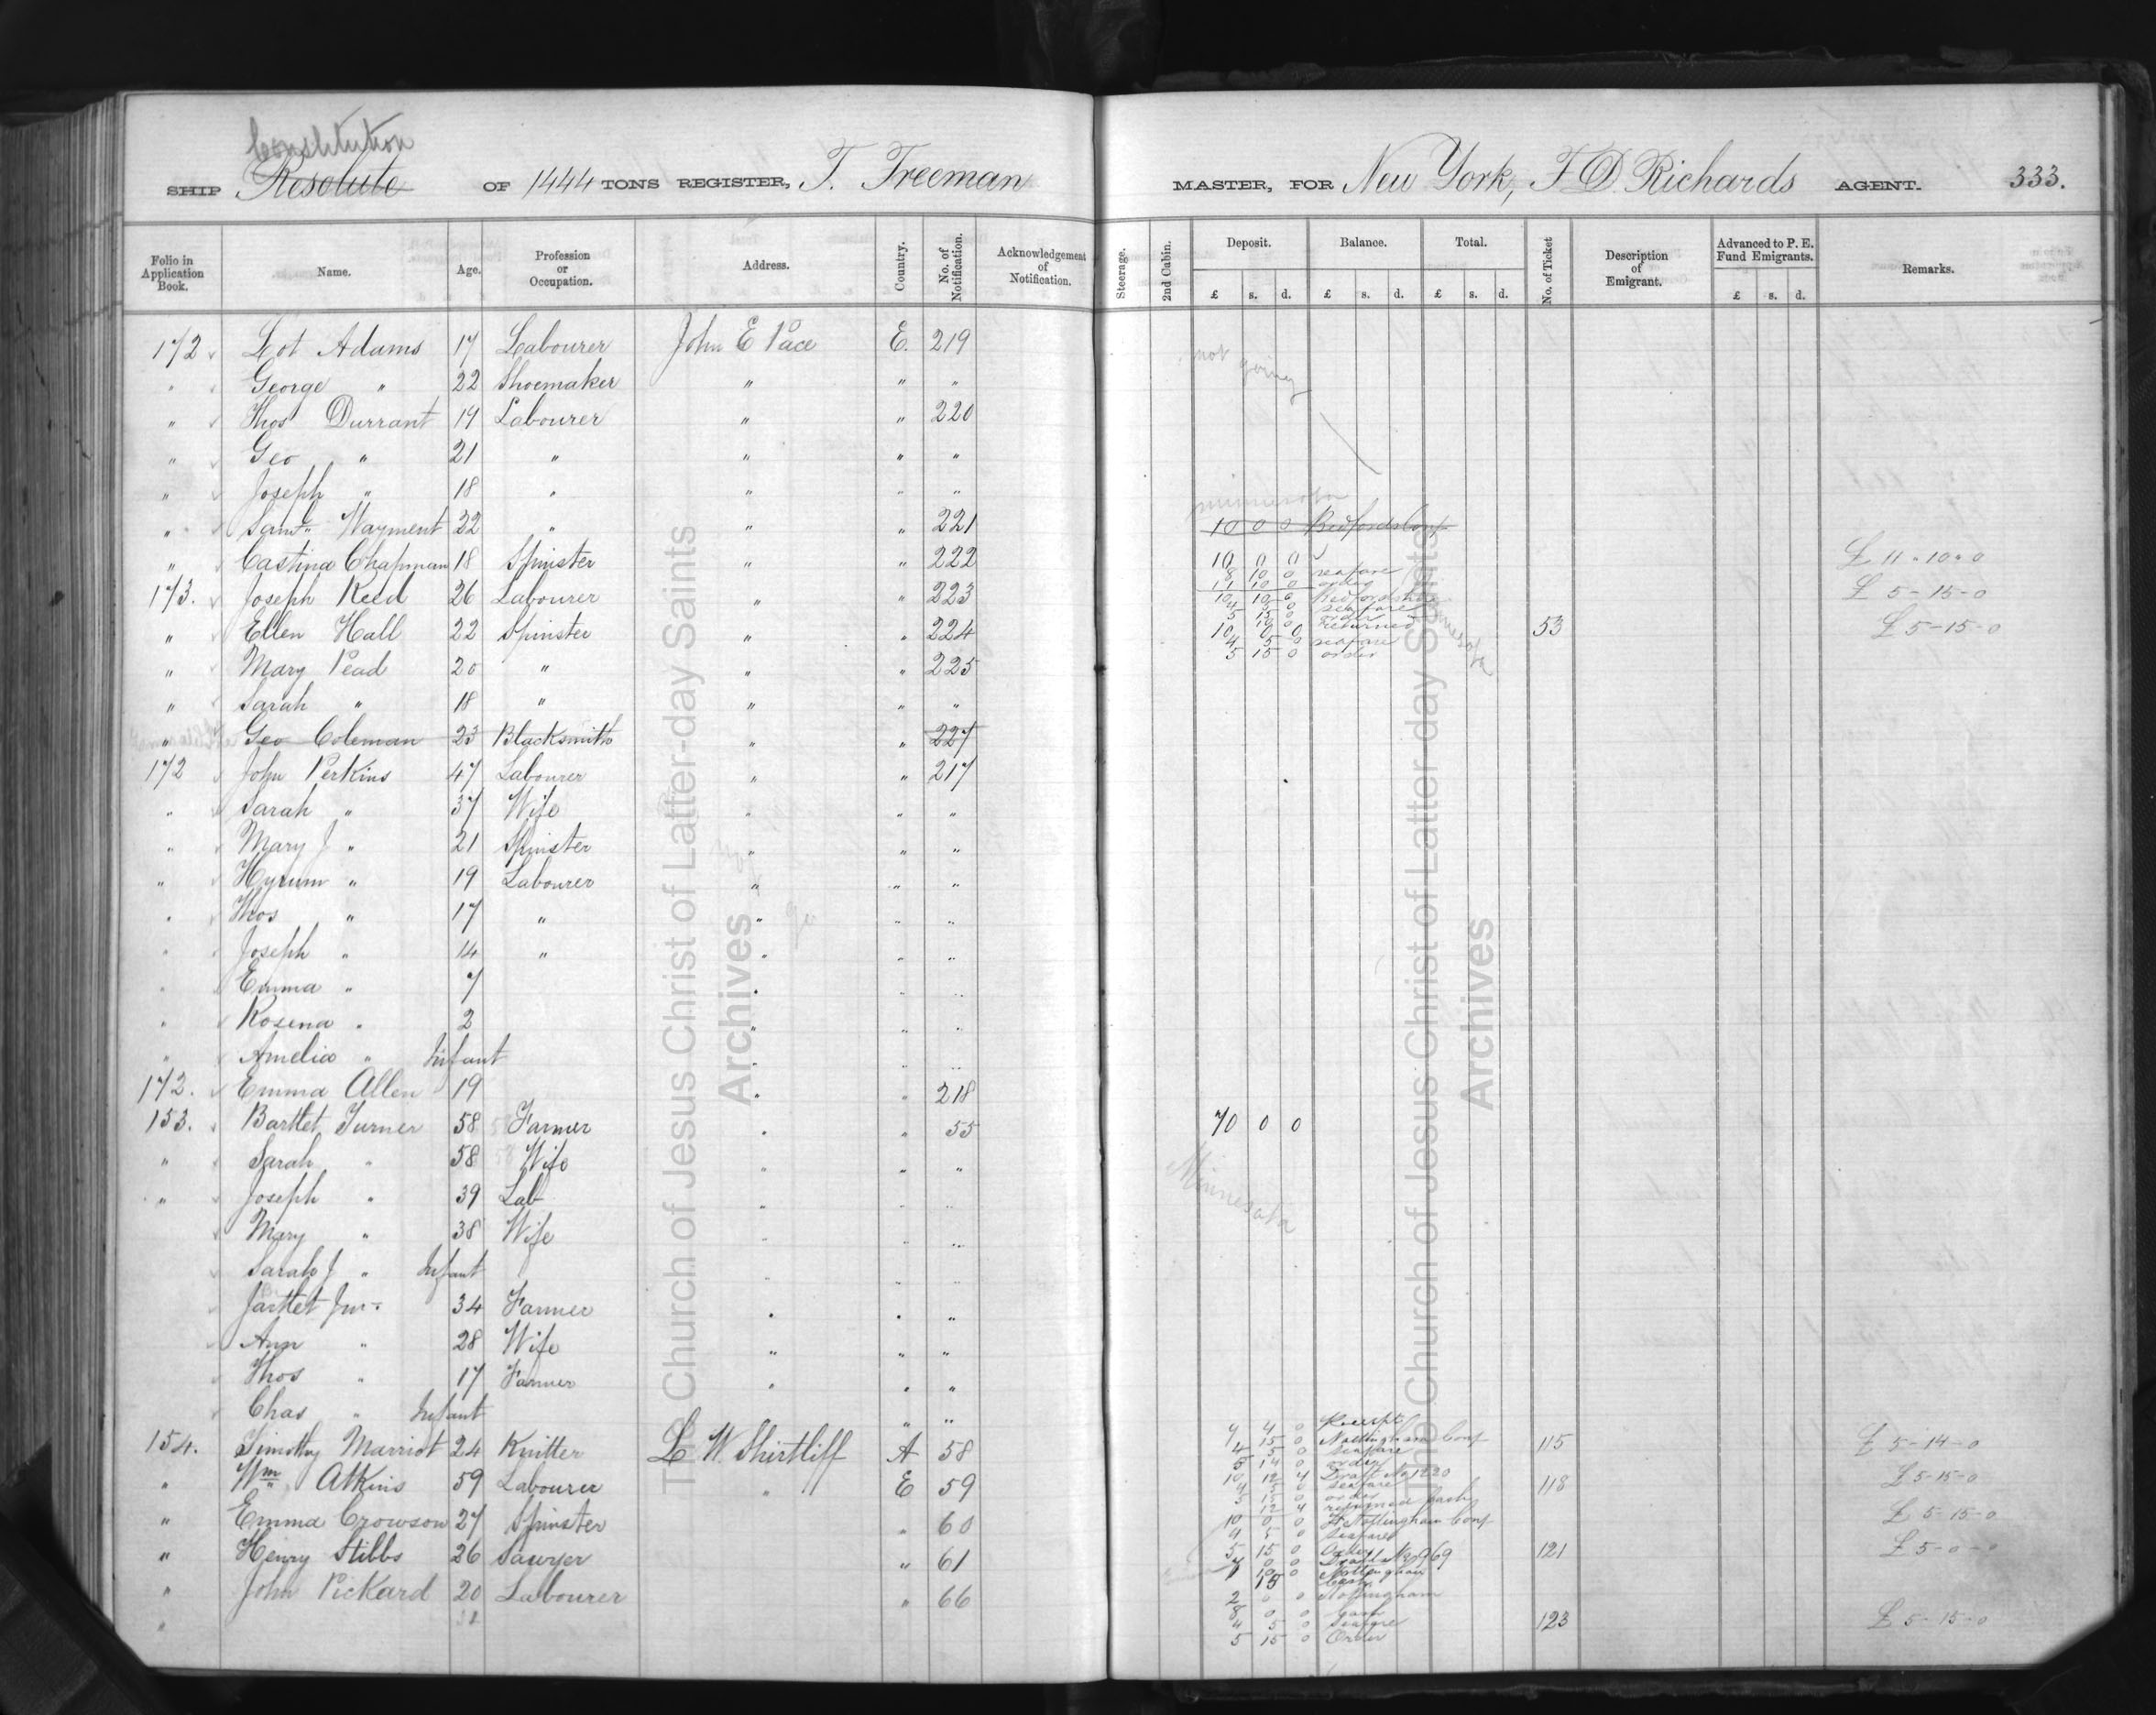 Constitution
SHIP Resolute OF 1444 TONS REGISTER, T. Freeman MASTER, FOR New York, F. D. Richards AGENT. 333.
Folio in Application Book. Name. Age. Profession or Occupation. Address. Country. No. of Notification. Acknowledgement of Notification. Steerage. 2nd Cabin. Deposit. £ s. d. Balance. £ s. d. Total. £ s. d. No. of Ticket Description of Emigrant. Advanced to P. E. Fund Emigrants. £ s. d. Remarks.
172 Lot Adams 17 Labourer John E Pace E. 219 not going
" George " 22 Shoemaker " " "
" Thos Durrant 19 Labourer " " 220
" Geo " 21 " " " "
" Joseph " 18 " " " "
" Saml. Wayment 22 " " " 221 10 0 0 Bedfords Conf
" Castina Chapman 18 Spinster " " 222 10 0 0 £ 11 " 10 " 0
8 10 0 seafare
11 10 0 order
173. Joseph Reed 26 Labourer " " 223 10 10 0 Bedfordshire £ 5-15-0
4 5 0 seafare
5 15 0 order
10 0 returned
" Ellen Hall 22 Spinster " " 224 10 0 0 53 £ 5-15-0
4 5 0 seafare
5 15 0 order
" Mary Pead 20 " " " 225
" Sarah " 18 " " " "
" Geo Coleman 23 Blacksmith " " 227
172 John Perkins 47 Labourer " " 217
" Sarah " 37 Wife " " "
" Mary J " 21 Spinster " " "
" Hyrum " 19 Labourer " " "
" Thos " 17 " " " "
" Joseph " 14 " " " "
" Emma " 7 " " "
" Rosena " 2 " " "
" Amelia " Infant " " "
172. Emma Allen 19 " " 218
153. Bartlet Turner 58 Farmer " " 55 70 0 0
" Sarah " 58 Wife " " "
" Joseph " 39 Lab " " " Minnesota
Mary " 38 Wife " " "
Sarah J " Infant " " "
Bartlet Jur. 34 Farmer " " "
Ann " 28 Wife " " "
Thos " 17 Farmer " " "
Chas " Infant " "
154. Timothy Marriot 24 Knitter L W Shirtliff A 58 115 £ 5-14-0
9 15 0 Nottingham Conf
4 5 0 seafare
5 14 0 order
" Wm Atkins 59 Labourer " E 59 10 12 4 Draft No 1220 118 £ 5-15-0
4 5 0 seafare
5 15 0 order
12 4 returned Cash
" Emma Crowson 27 Spinster " 60 10 0 0 Nottingham Conf £ 5-15-0
4 5 0 seafare
5 15 0 Order
" Henry Stibbs 26 Sawyer " 61 121 £ 5-0-0
" John Pickard 20 Labourer " 66 2 0 0 Nottingham
8 0 0 Cash
4 5 0 seafare 123 £ 5-15-0
5 15 0 Order
The Church of Jesus Christ of Latter-day Saints
Archives
The Church of Jesus Christ of Latter-day Saints
Archives